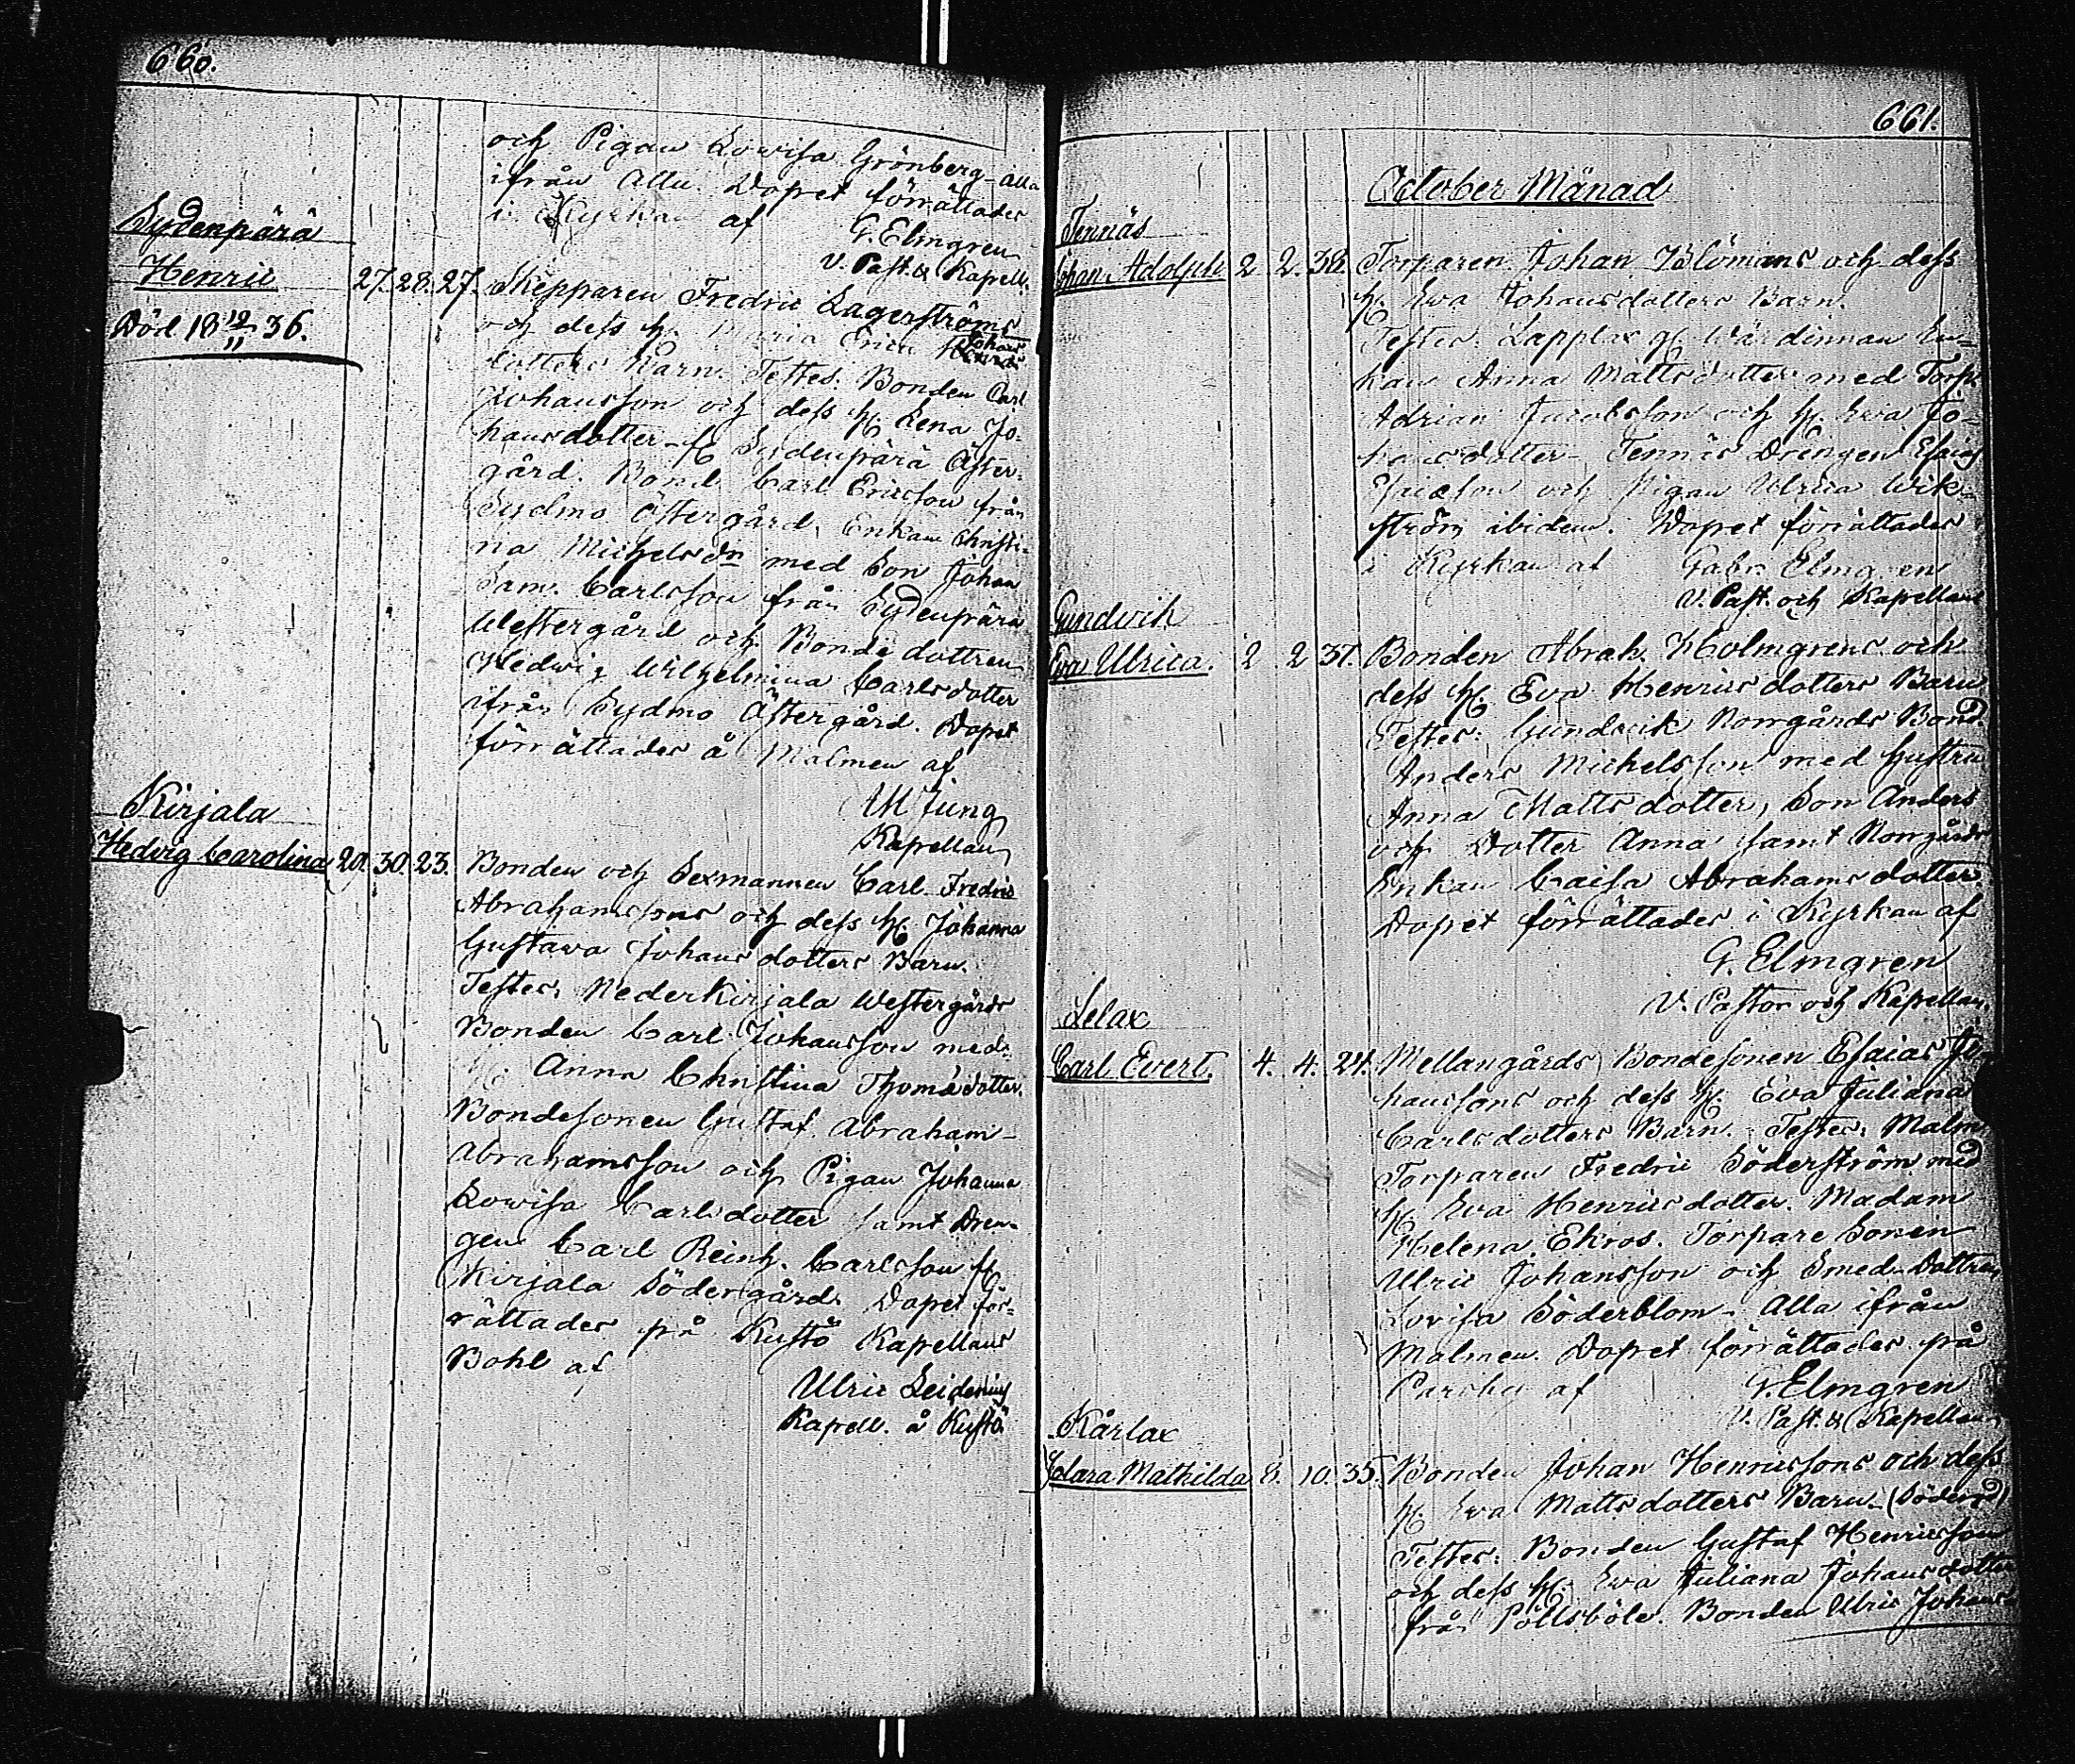 660.
och Pigan Lovisa Grönberg - alla
ifrån Allu. Dopet förrättades
i Kyrkan af
G. Elmgren
V. Past. & Kapell.
Sydenpärä
Henric
27. 28. 27.
Död 18 19/11 36.
Skepparen Fredric Lagerströms
och dess h. Maria Erica Johans
dotters Barn. Testes. Bonden Carl
Johansson och dess h. Lena Jo-
hansdotter fr Sydenpärä Öster-
gård. Bond. Carl Ericsson från
Sydmo Östergård, Enkan Christi-
na Michelsdn med Son Johan
Sam. Carlsson från Sydenpärä
Westergård och Bonde dottren
Hedwig Wilhelmina Carlsdotter
ifrån Sydmo Östergård. Dopet
förrättades å Malmen af
M Jung
Kapellan
Kirjala
Hedvig Carolina
29. 30. 23.
Bonden och Sexmannen Carl Fredric
Abrahamssons och dess h. Johanna
Gustava Johansdotters Barn.
Testes, Nederkirjala Westergårds
Bonden Carl Johansson med
h. Anna Christina Thomædotter.
Bondesonen Gustaf Abraham-
Abrahamsson och Pigan Johanna
Lovisa Carlsdotter samt Dren-
gen Carl Reinh. Carlsson fr
Kirjala Södergård. Dopet för-
rättades på Kustö Kapellans
Bohl af
Ulric Leidenius
Kapell. å Kustö
661.
October Månad
Tennäs
Johan Adolph 2 2. 38.
Torparen Johan Blömans och dess
h. Eva Johansdotters Barn.
Testes. Lapplax g. Wärdinnan En-
kan Anna Mattsdotter med Torp.
Adrian Jacobsson och h. Eva Jo-
hansdotter - Tennäs Drengen Esaias
Esaiasson och Pigan Ulrica Wik-
ström ibidem. Dopet förrättades
i Kyrkan af Gabr. Elmgren
V. Past. och Kapellan
Gundvik
Eva Ulrica. 2 2 37.
Bonden Abrah. Holmgrens och
dess h. Eva Henricsdotters Barn
Testes: Gundvik Norrgårds Bond.
Anders Michelsson med Hustru
Anna Mattsdotter, Son Anders
och Dotter Anna samt Norrgårds
Enkan Caisa Abrahamsdotter.
Dopet förrättades i Kyrkan af
G. Elmgren
V. Pastor och Kapellan.
Lelax
Carl Evert. 4. 4. 24.
Mellangårds Bondesonen Esaias Jo-
hanssons och dess h. Eva Juliana
Carlsdotters Barn. - Testes: Malm
Torparen Fredric Söderström med
h. Eva Henricsdotter. Madam
Helena Ekros. Torpare Sonen
Ulric Johansson och Smed-Dottren
Lovisa Söderblom - Alla ifrån
Malmen. Dopet förrättades på
af G. Elmgren
V. Past. & Kapellan
Kårlax
Clara Mathilda 8. 10. 35.
Bonden Johan Henricssons och dess
h. Eva Mattsdotters Barn.
Testes: Bonden Gustaf Henricsson
och dess h. Eva Juliana Johansdotter
från Pöllsböle. Bonden Ulric Johans-